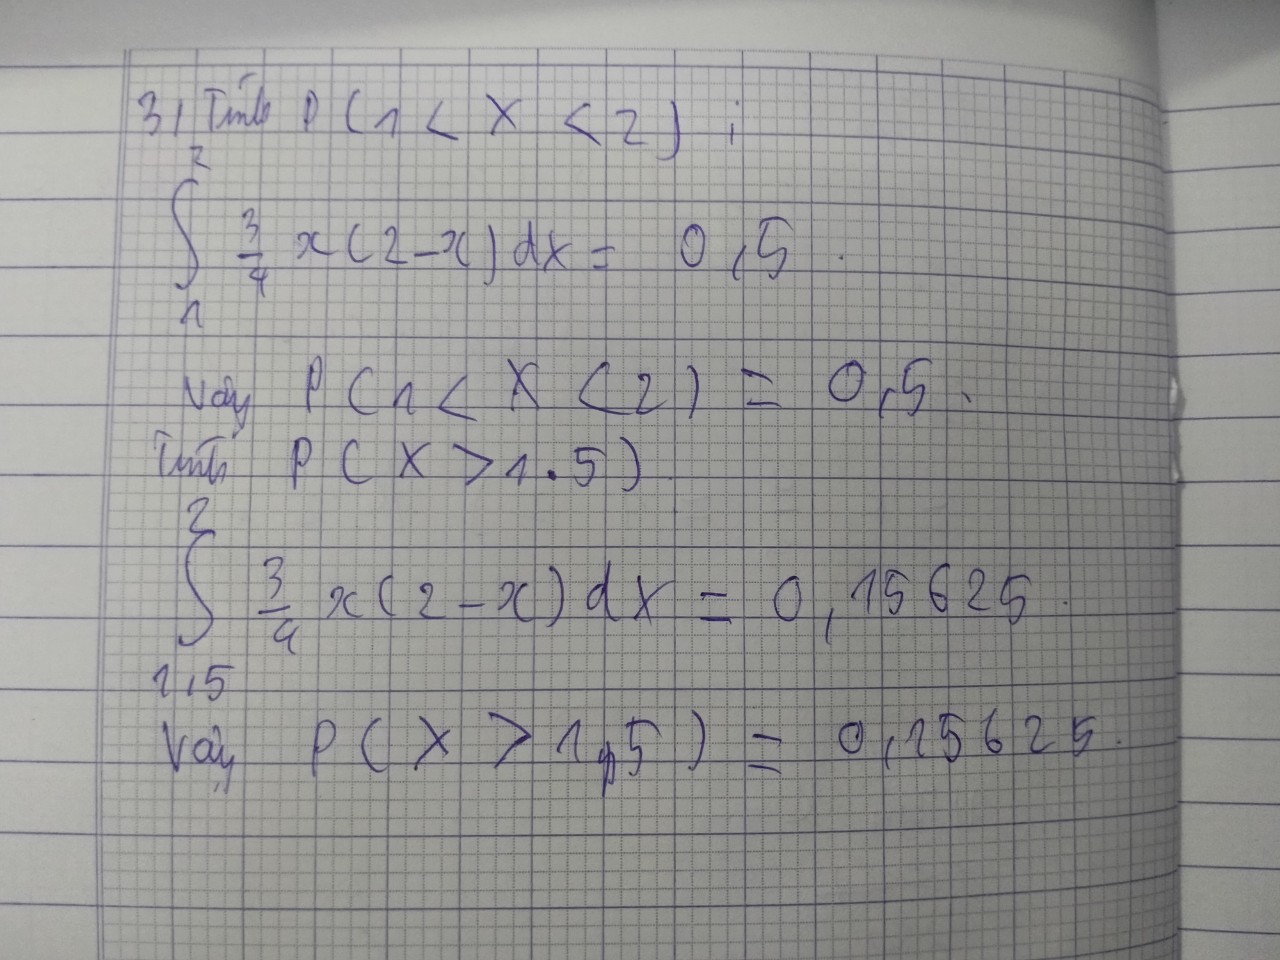 3, Tính P(1 < X < 2) ;
∫₁² 3/4 x(2-x)dx = 0,5.
Vậy P(1 < X < 2) = 0,5.
Tính P(X > 1.5)
∫₁,₅² 3/4 x(2-x)dx = 0,15625.
Vậy P(X > 1,5) = 0,15625.